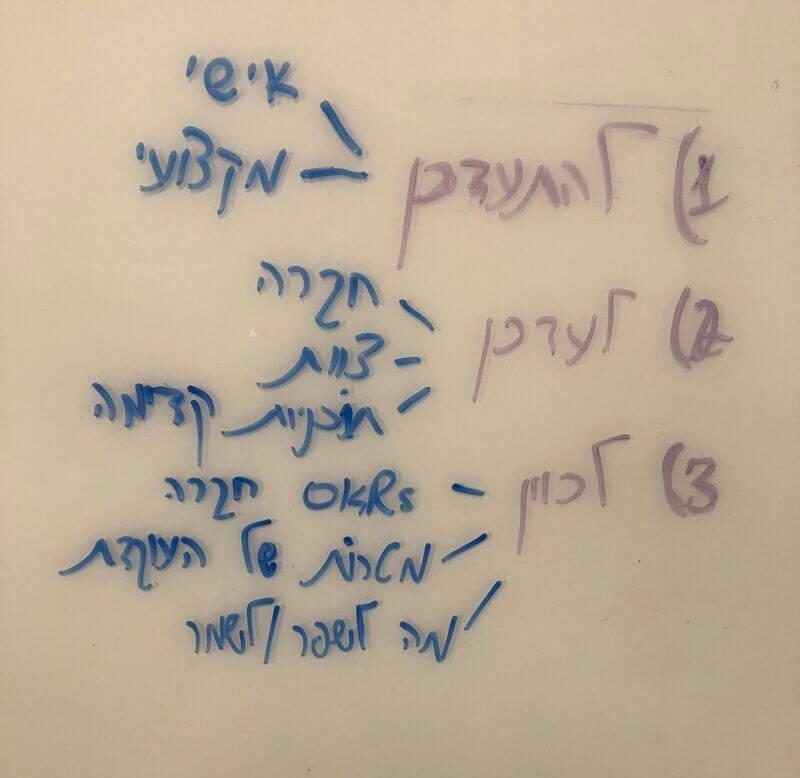 1) להתעדכן
אישי
מקצועי
2) לעדכן
חברה
צוות
תוכניות קדימה
3) לכוון
OKRs חברה
מטרות של העוקדת
מה לשפר/לשמר